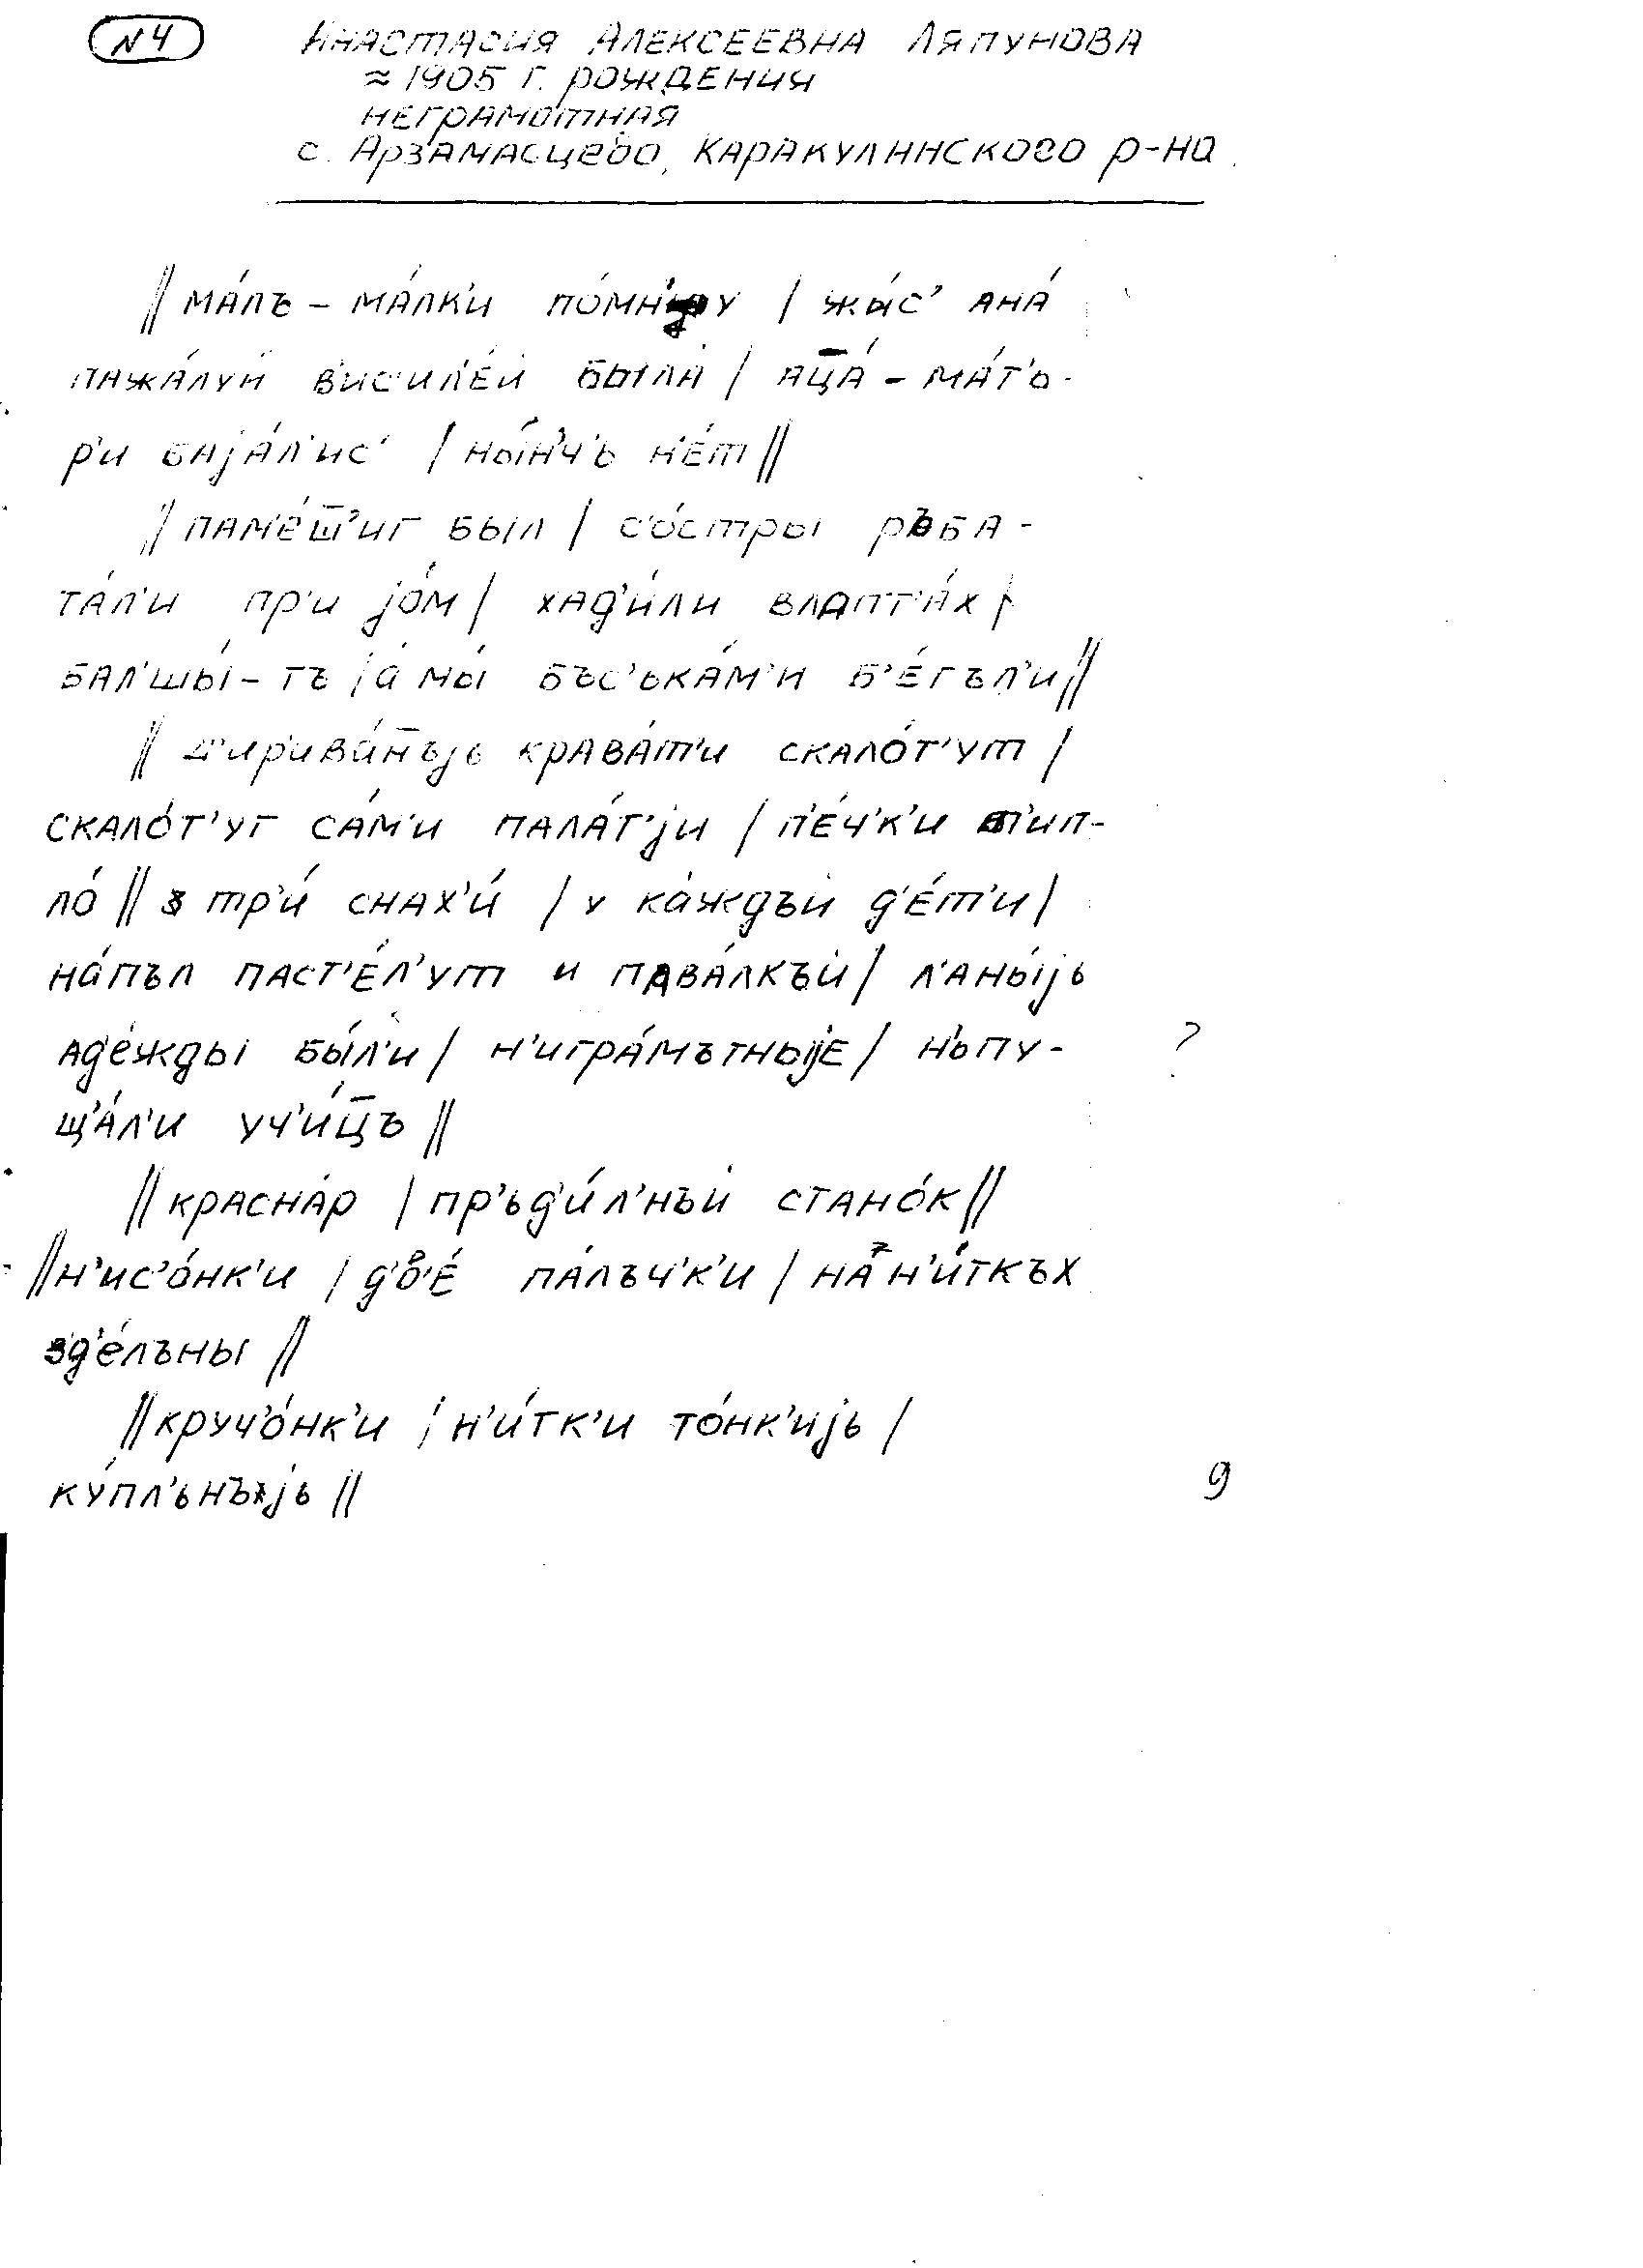 №4 Анастасия Алексеевна Ляпунова
≈ 1905 г. рождения
неграмотная
с. Арзамасцево, Каракулинского р-на.
‖ ма́лъ – ма́лк'и по́мн'у / жы́с' ана́
пажа́луй в'ис'ил'е́й была́ / ац̄а́ – ма́т'ь-
р'и баjа́л'ис' / ны́н'ч'ь н'е́т ‖
‖ пам'е́ш̄'иг был / с'о́стры ръба-
та́л'и пр'и jо́м / хад'и́ли влапт'а́х /
бал'шы́-тъ jа мы́ бъс'ька́м'и б'е́гъл'и ‖
‖ д'ир'ива́н̄ъjь крава́т'и скало́т'ут /
скало́т'уг са́м'и пала́т'jи / п'е́ч'к'и т'ип-
ло́ ‖ тр'и́ снах'и́ / у ка́ждъй д'е́т'и /
на́пъл паст'е́л'ут и пава́лкъй / л'аны́jь
ад'е́жды бы́л'и / н'игра́мътныjе / н'ьпу- ?
щ'а́л'и уч'и́ц̄ъ ‖
‖ красна́р / пр'ьд'и́л'нъй стано́к ‖
‖ н'ис'о́нк'и / д'в'е́ па́лъч'к'и / на н'и́ткъх
зд'е́лъны ‖
‖ круч'о́нк'и / н'и́тк'и то́нк'иjь /
ку́пл'ьнъjь ‖ 9